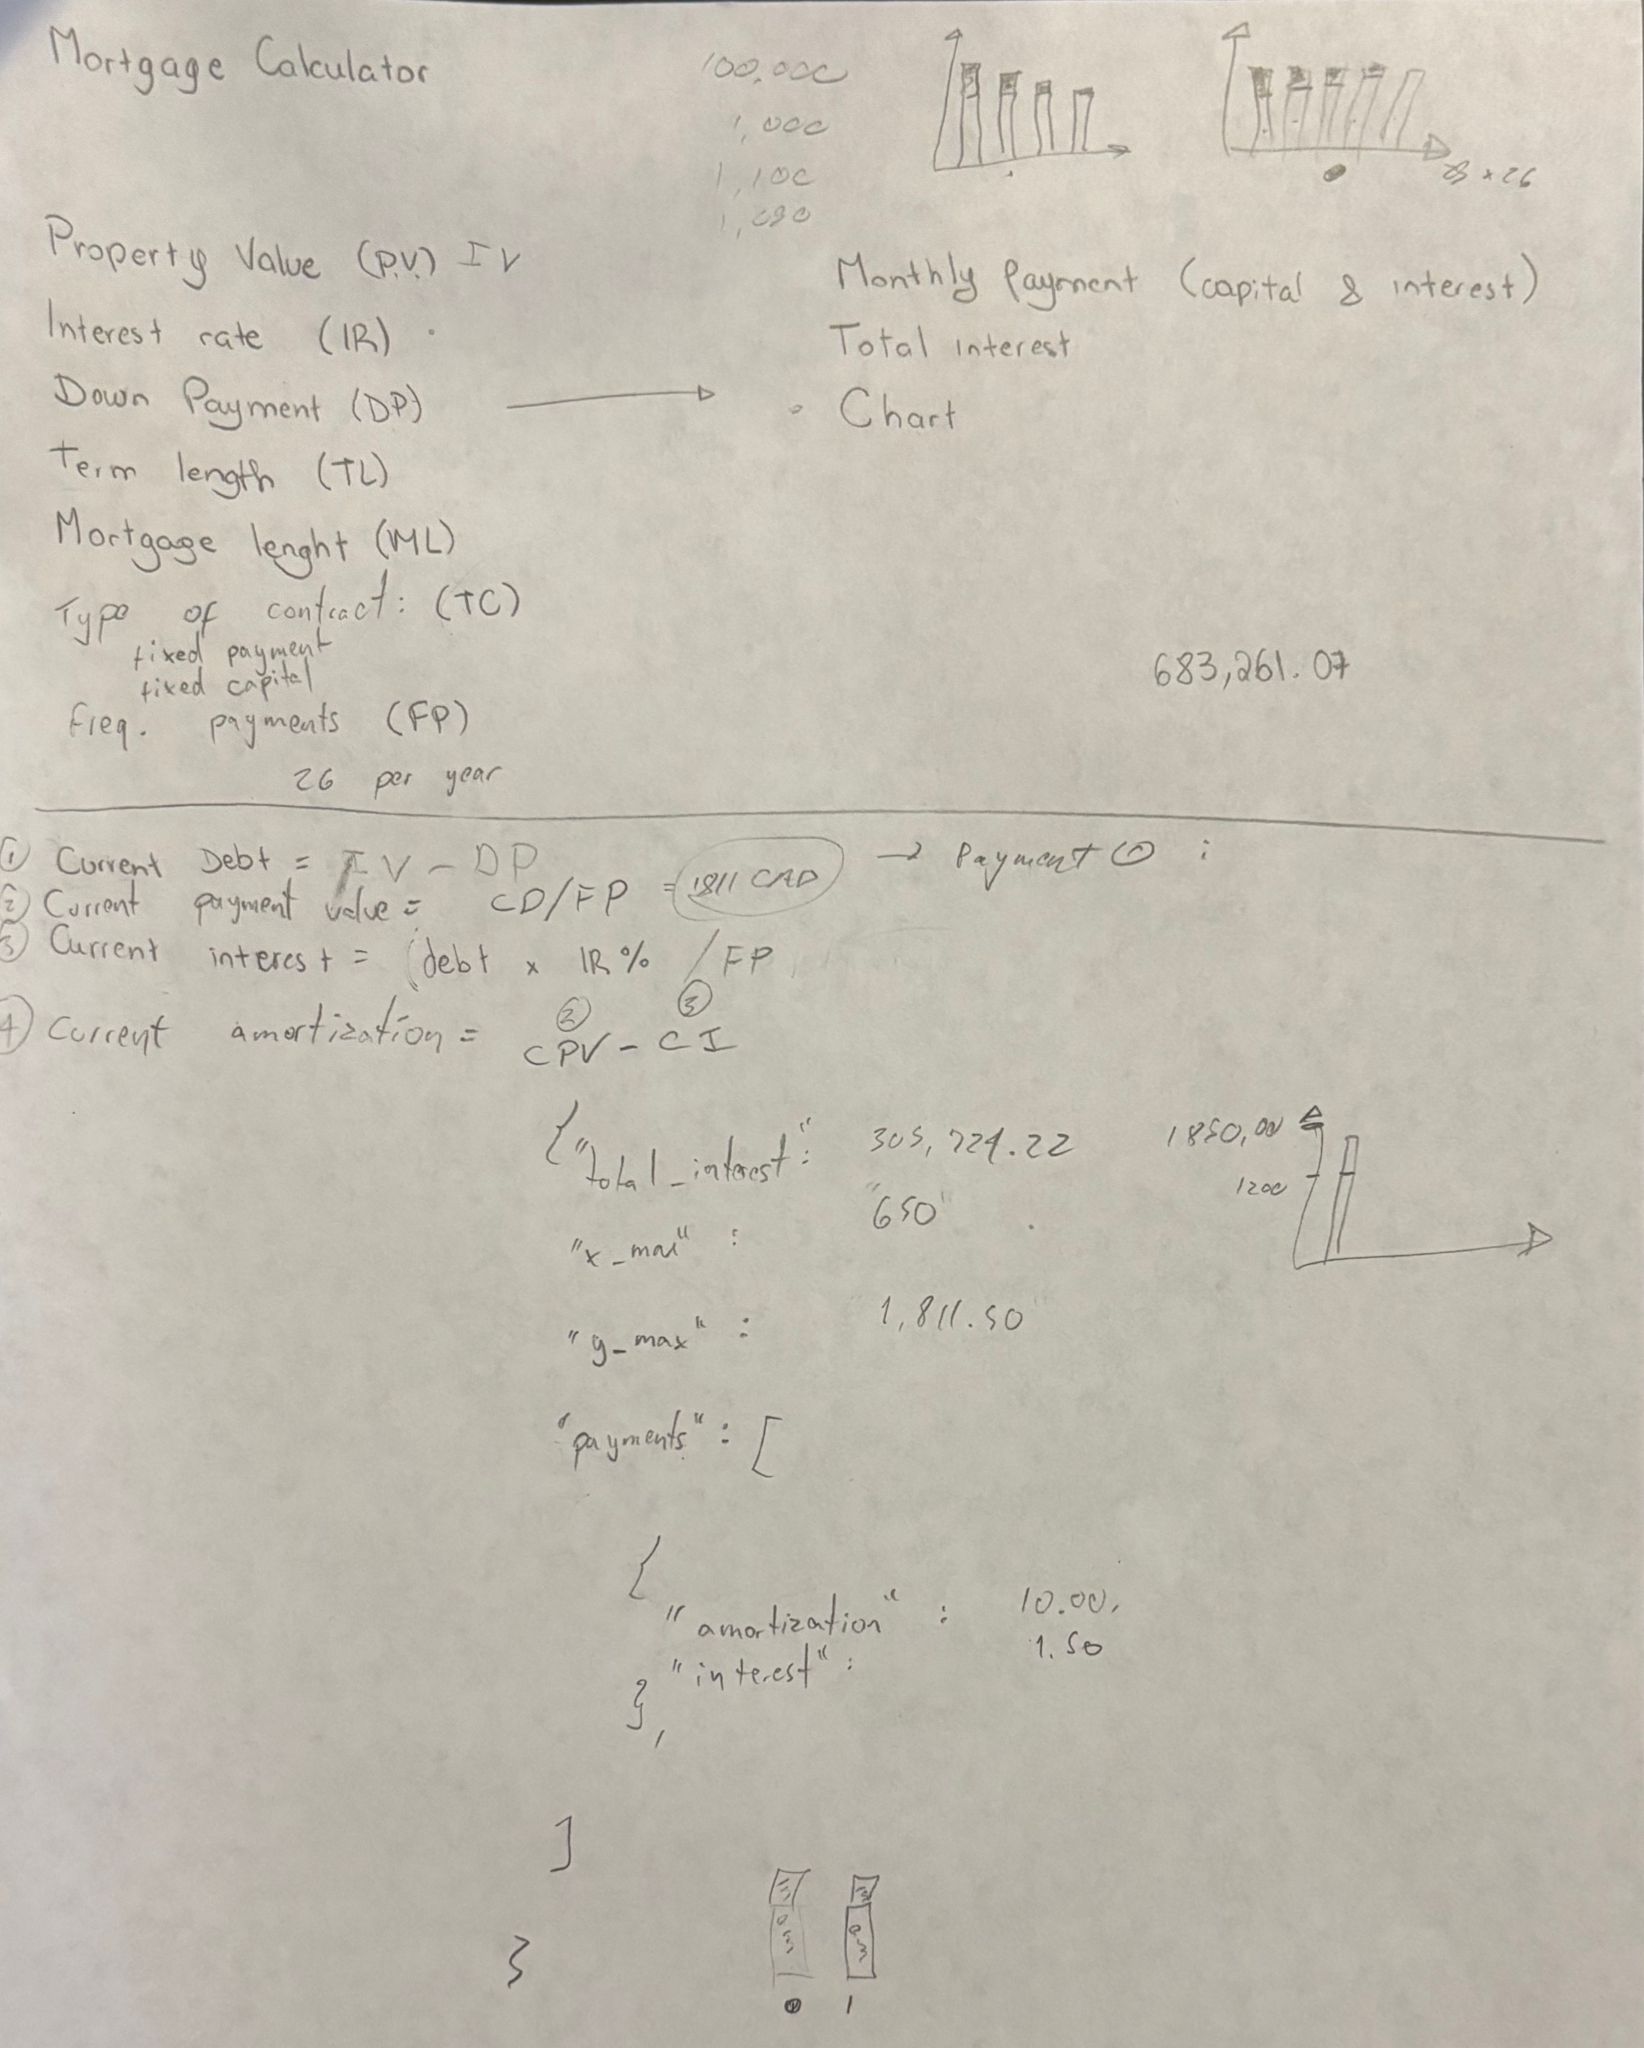 Mortgage Calculator
100,000
1,000
1,100
1,090
x 26
Property Value (P.V.) IV
Interest rate (IR)
Down Payment (DP)
Term length (TL)
Mortgage lenght (ML)
Type of contract: (TC)
fixed payment
fixed capital
Freq. payments (FP)
26 per year
Monthly Payment (capital & interest)
Total interest
Chart
683,261.07
① Current Debt = IV - DP
② Current payment value = CD/FP = 1811 CAD → Payment 0 :
③ Current interest = (debt x IR% / FP
② ③
④ Current amortization = CPV - CI
{"total_interest": 305,724.22
"x_max" : "650"
"y_max" : 1,811.50
"payments" : [
{
"amortization" : 10.00,
"interest" : 1.50
},
]
}
1850,00
1200
0 1